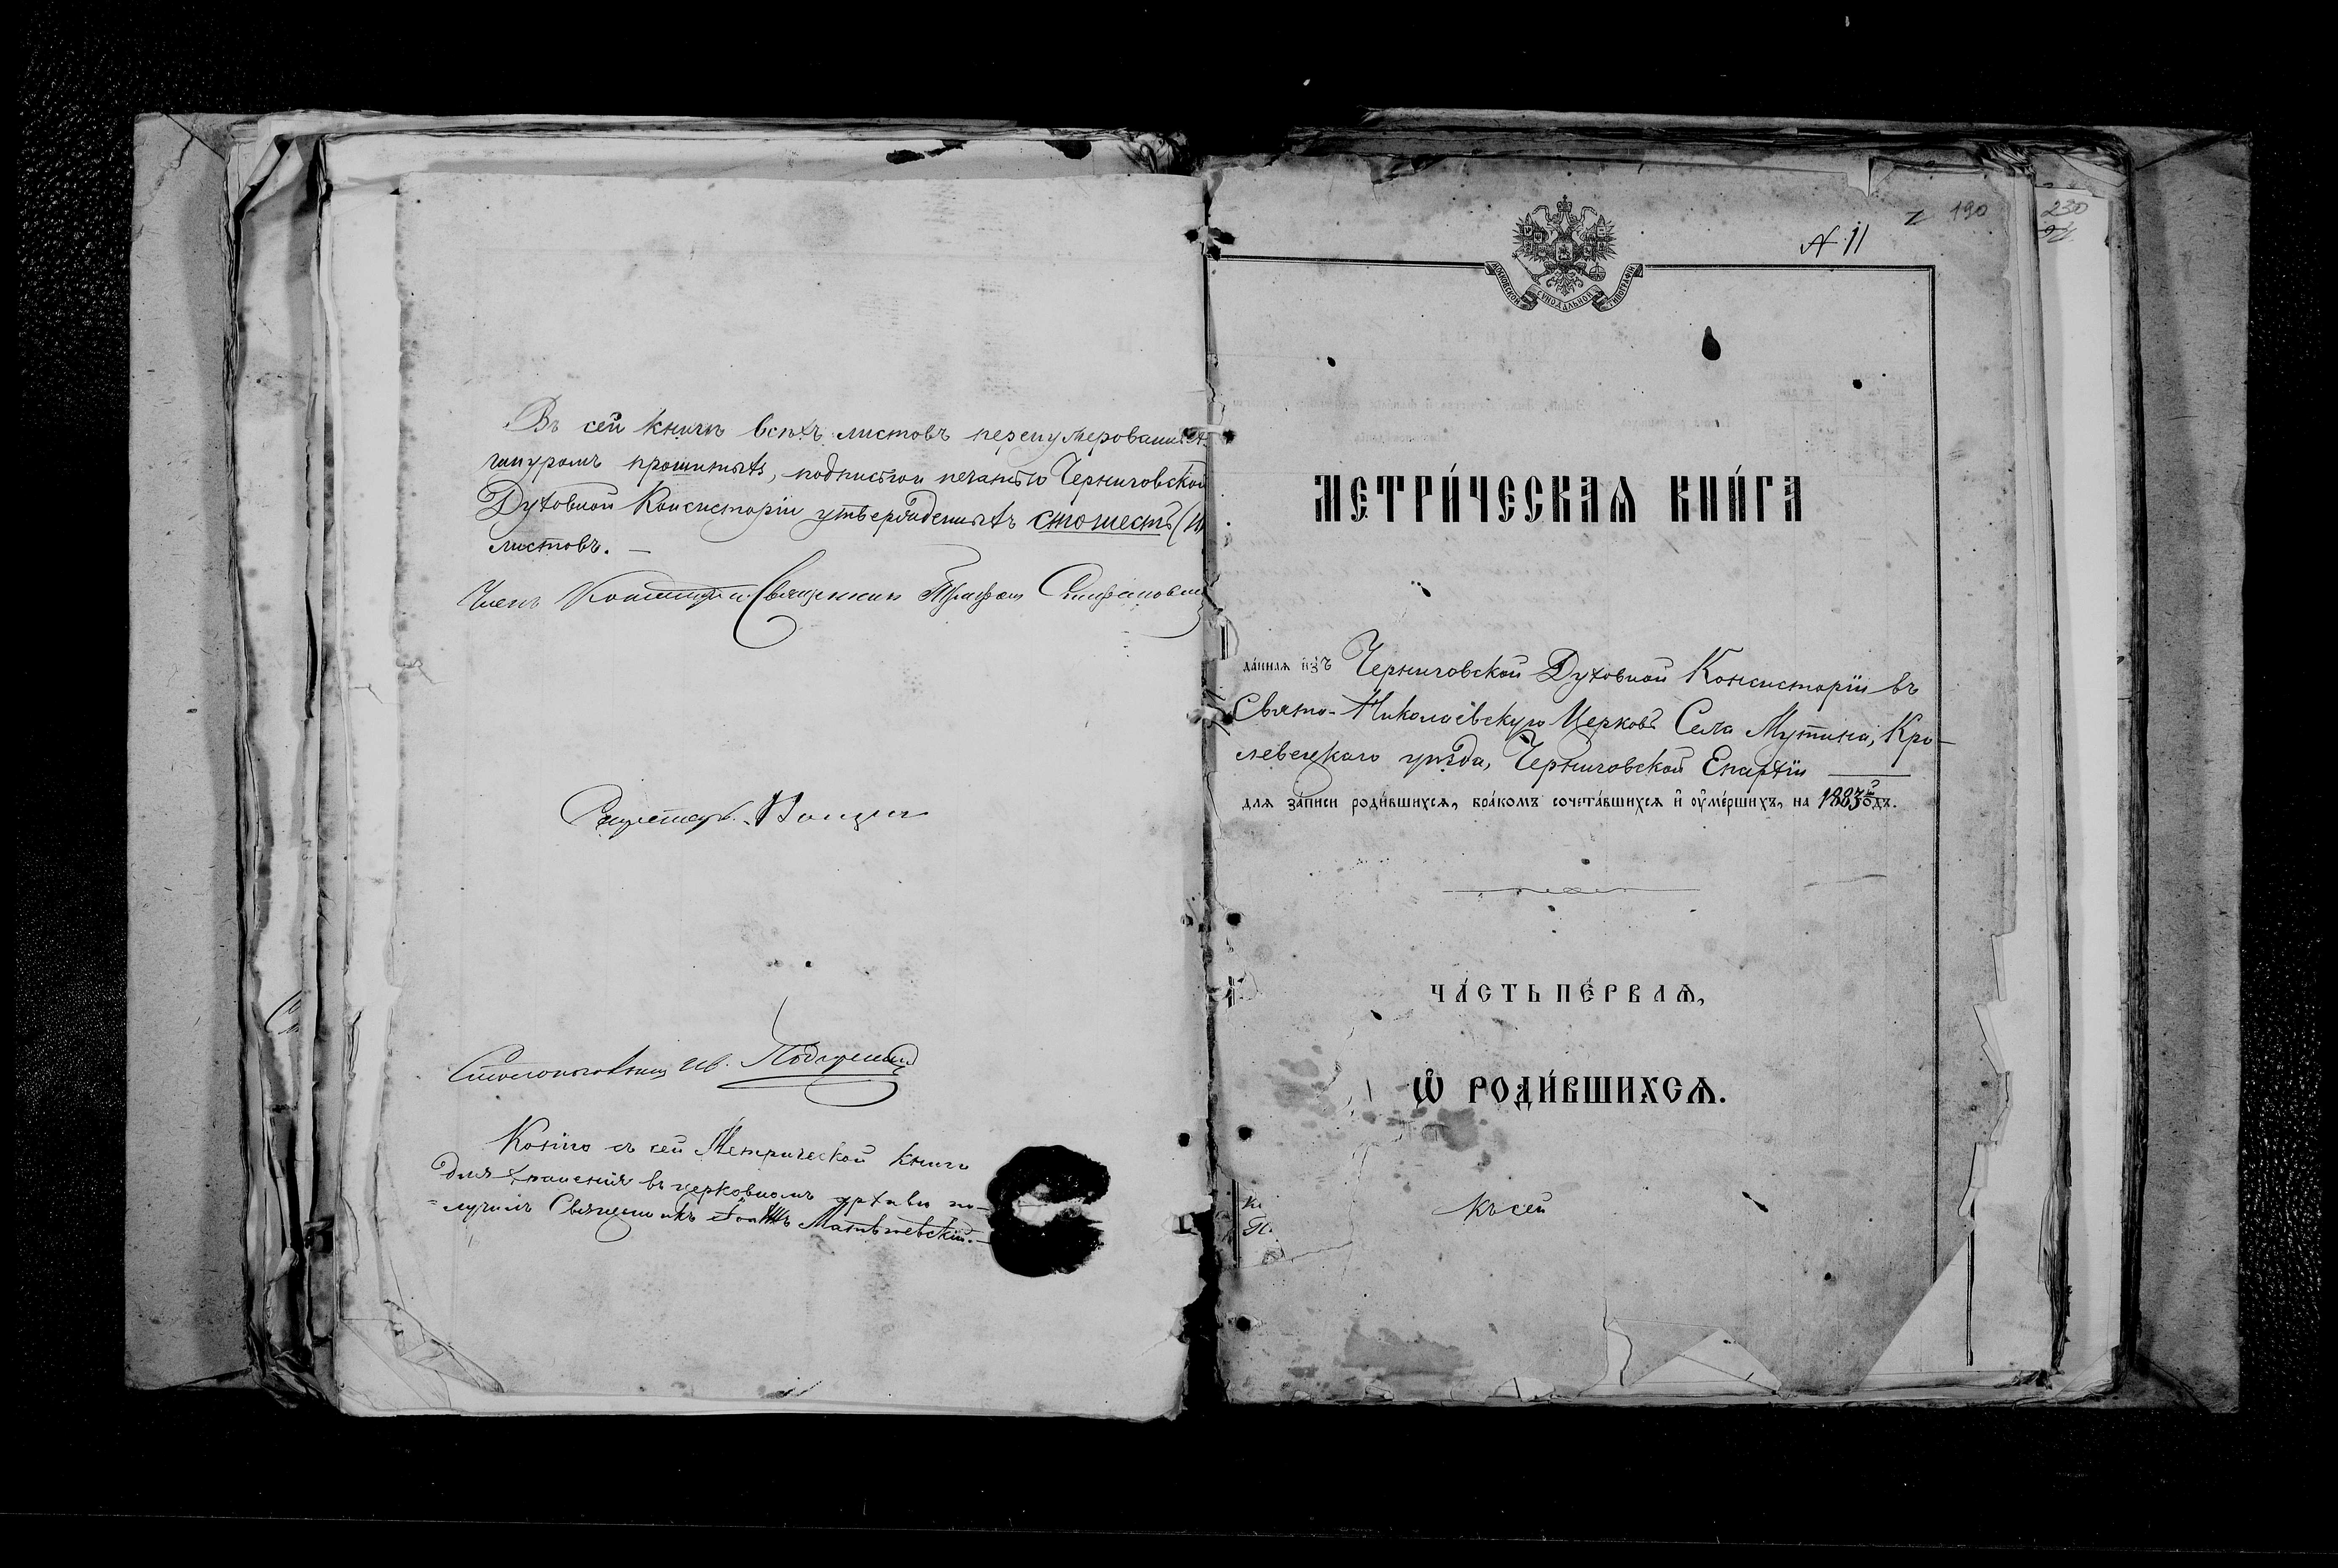 Въ сей книгѣ всѣхъ листовъ перенумерованныхъ
шнуромъ прошитыхъ, подписью и печатью Черниговской
Духовной Консисторіи утвержденныхъ стошесть (10
листовъ. —
Членъ Консисторіи Священникъ
Секретарь
Столоначальникъ Ив.
Копію съ сей Метрической книги
для храненія въ церковномъ архивѣ по-
=лучилъ Священникъ Матвѣевскій. —
190
230
№ 11
МОСКОВСКОЙ СѴНОДАЛЬНОЙ ТИПОГРАФІИ
МЕТРИ́ЧЕСКАѦ КНИ́ГА
да́ннаѧ и҆з̾ Черниговской Духовной Консисторіи въ
Свято-Николаевскую Церковь Села Мутина, Кро-
левецкаго уѣзда, Черниговской Епархіи —
для за́писи роди́вшихсѧ, бра́комъ сочета́вшихсѧ и҆ оу҆ме́ршихъ, на 1883й го́дъ.
ЧА́СТЬ ПЕ́РВАѦ,
Ѡ҆ РОДИ́ВШИХСѦ.
Къ сей